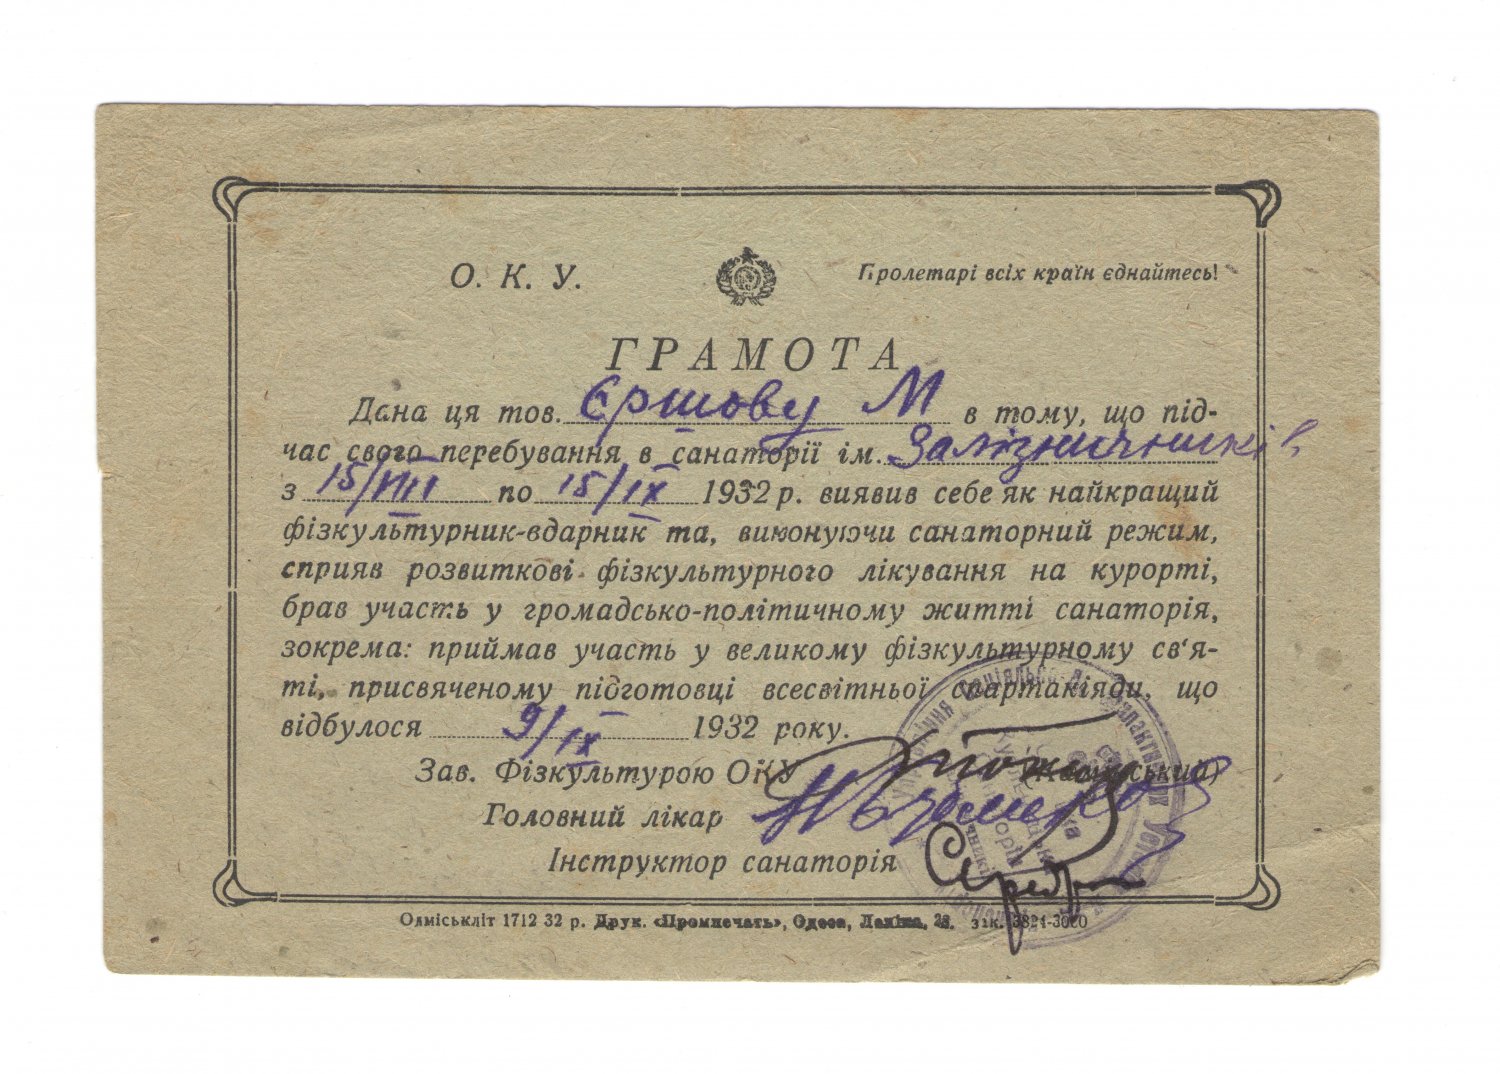 О. К. У.
Пролетарі всіх країн єднайтесь!
ГРАМОТА
Дана ця тов. Єршову М в тому, що під-
час свого перебування в санаторії ім. Залізничників
з 15/VIII по 15/IX 1932 р. виявив себе як найкращий
фізкультурник-вдарник та, виконуючи санаторний режим,
сприяв розвиткові фізкультурного лікування на курорті,
брав участь у громадсько-політичному житті санаторія,
зокрема: приймав участь у великому фізкультурному св'я-
ті, присвяченому підготовці всесвітньої спартакіяди, що
відбулося 9/IX 1932 року.
Зав. Фізкультурою ОКУ
Головний лікар
Інструктор санаторія
Одміськліт 1712 32 р. Друк. «Промпечать», Одеса, Леніна, зак. 3824-3000